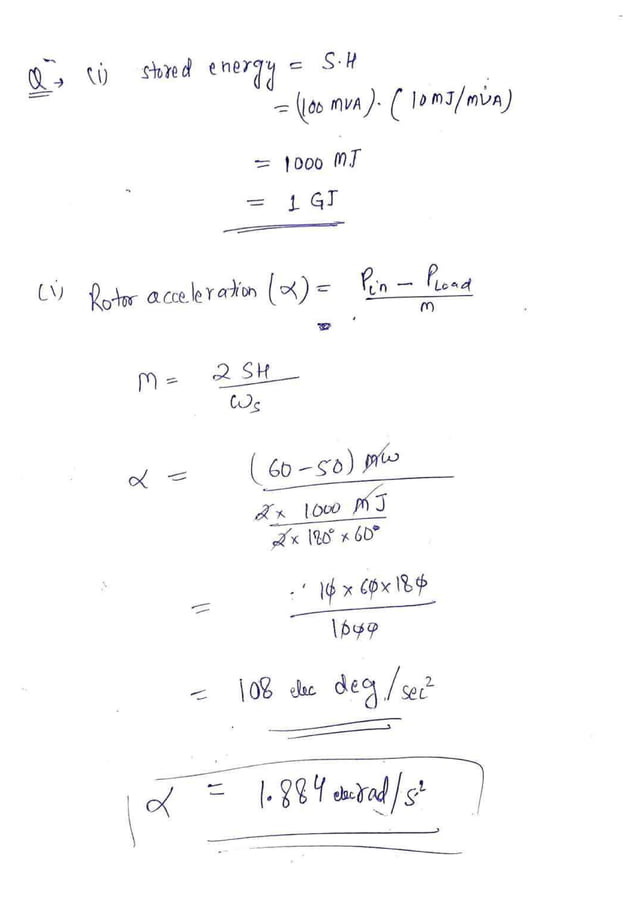 Q→ (i) stored energy = S.H
= (100 MVA). (10 MJ/MVA)
= 1000 MJ
= 1 GJ
(i) Rotor acceleration (α) = Pin - PLoad
m
M = 2 SH
ωs
α = (60-50) MW
2 x 1000 MJ
2 x 180° x 60°
= 10 x 60 x 180
1000
= 108 elec deg/sec²
α = 1.884 elec rad/s²